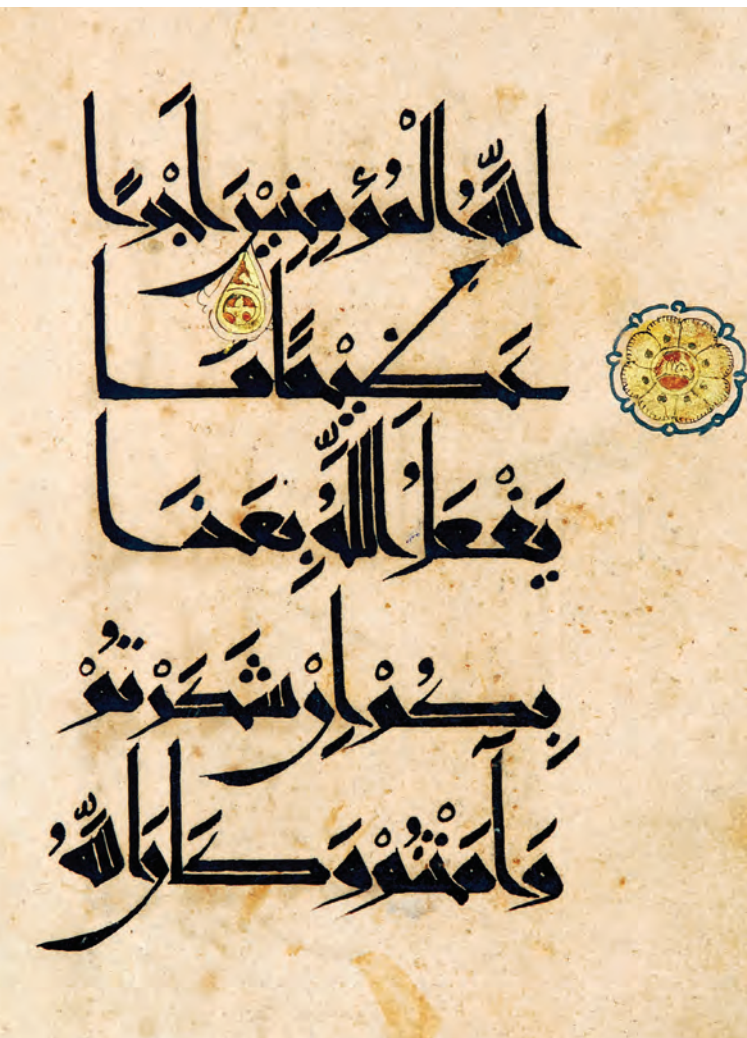 اللَّهُ الْمُؤْمِنِيْنَ أَجْرًا
عَظِيْمًا مَا
يَفْعَلُ اللَّهُ بِعَذَا
بِكُمْ إِنْ شَكَرْتُمْ
وَآمَنْتُمْ وَكَانَ اللَّهُ